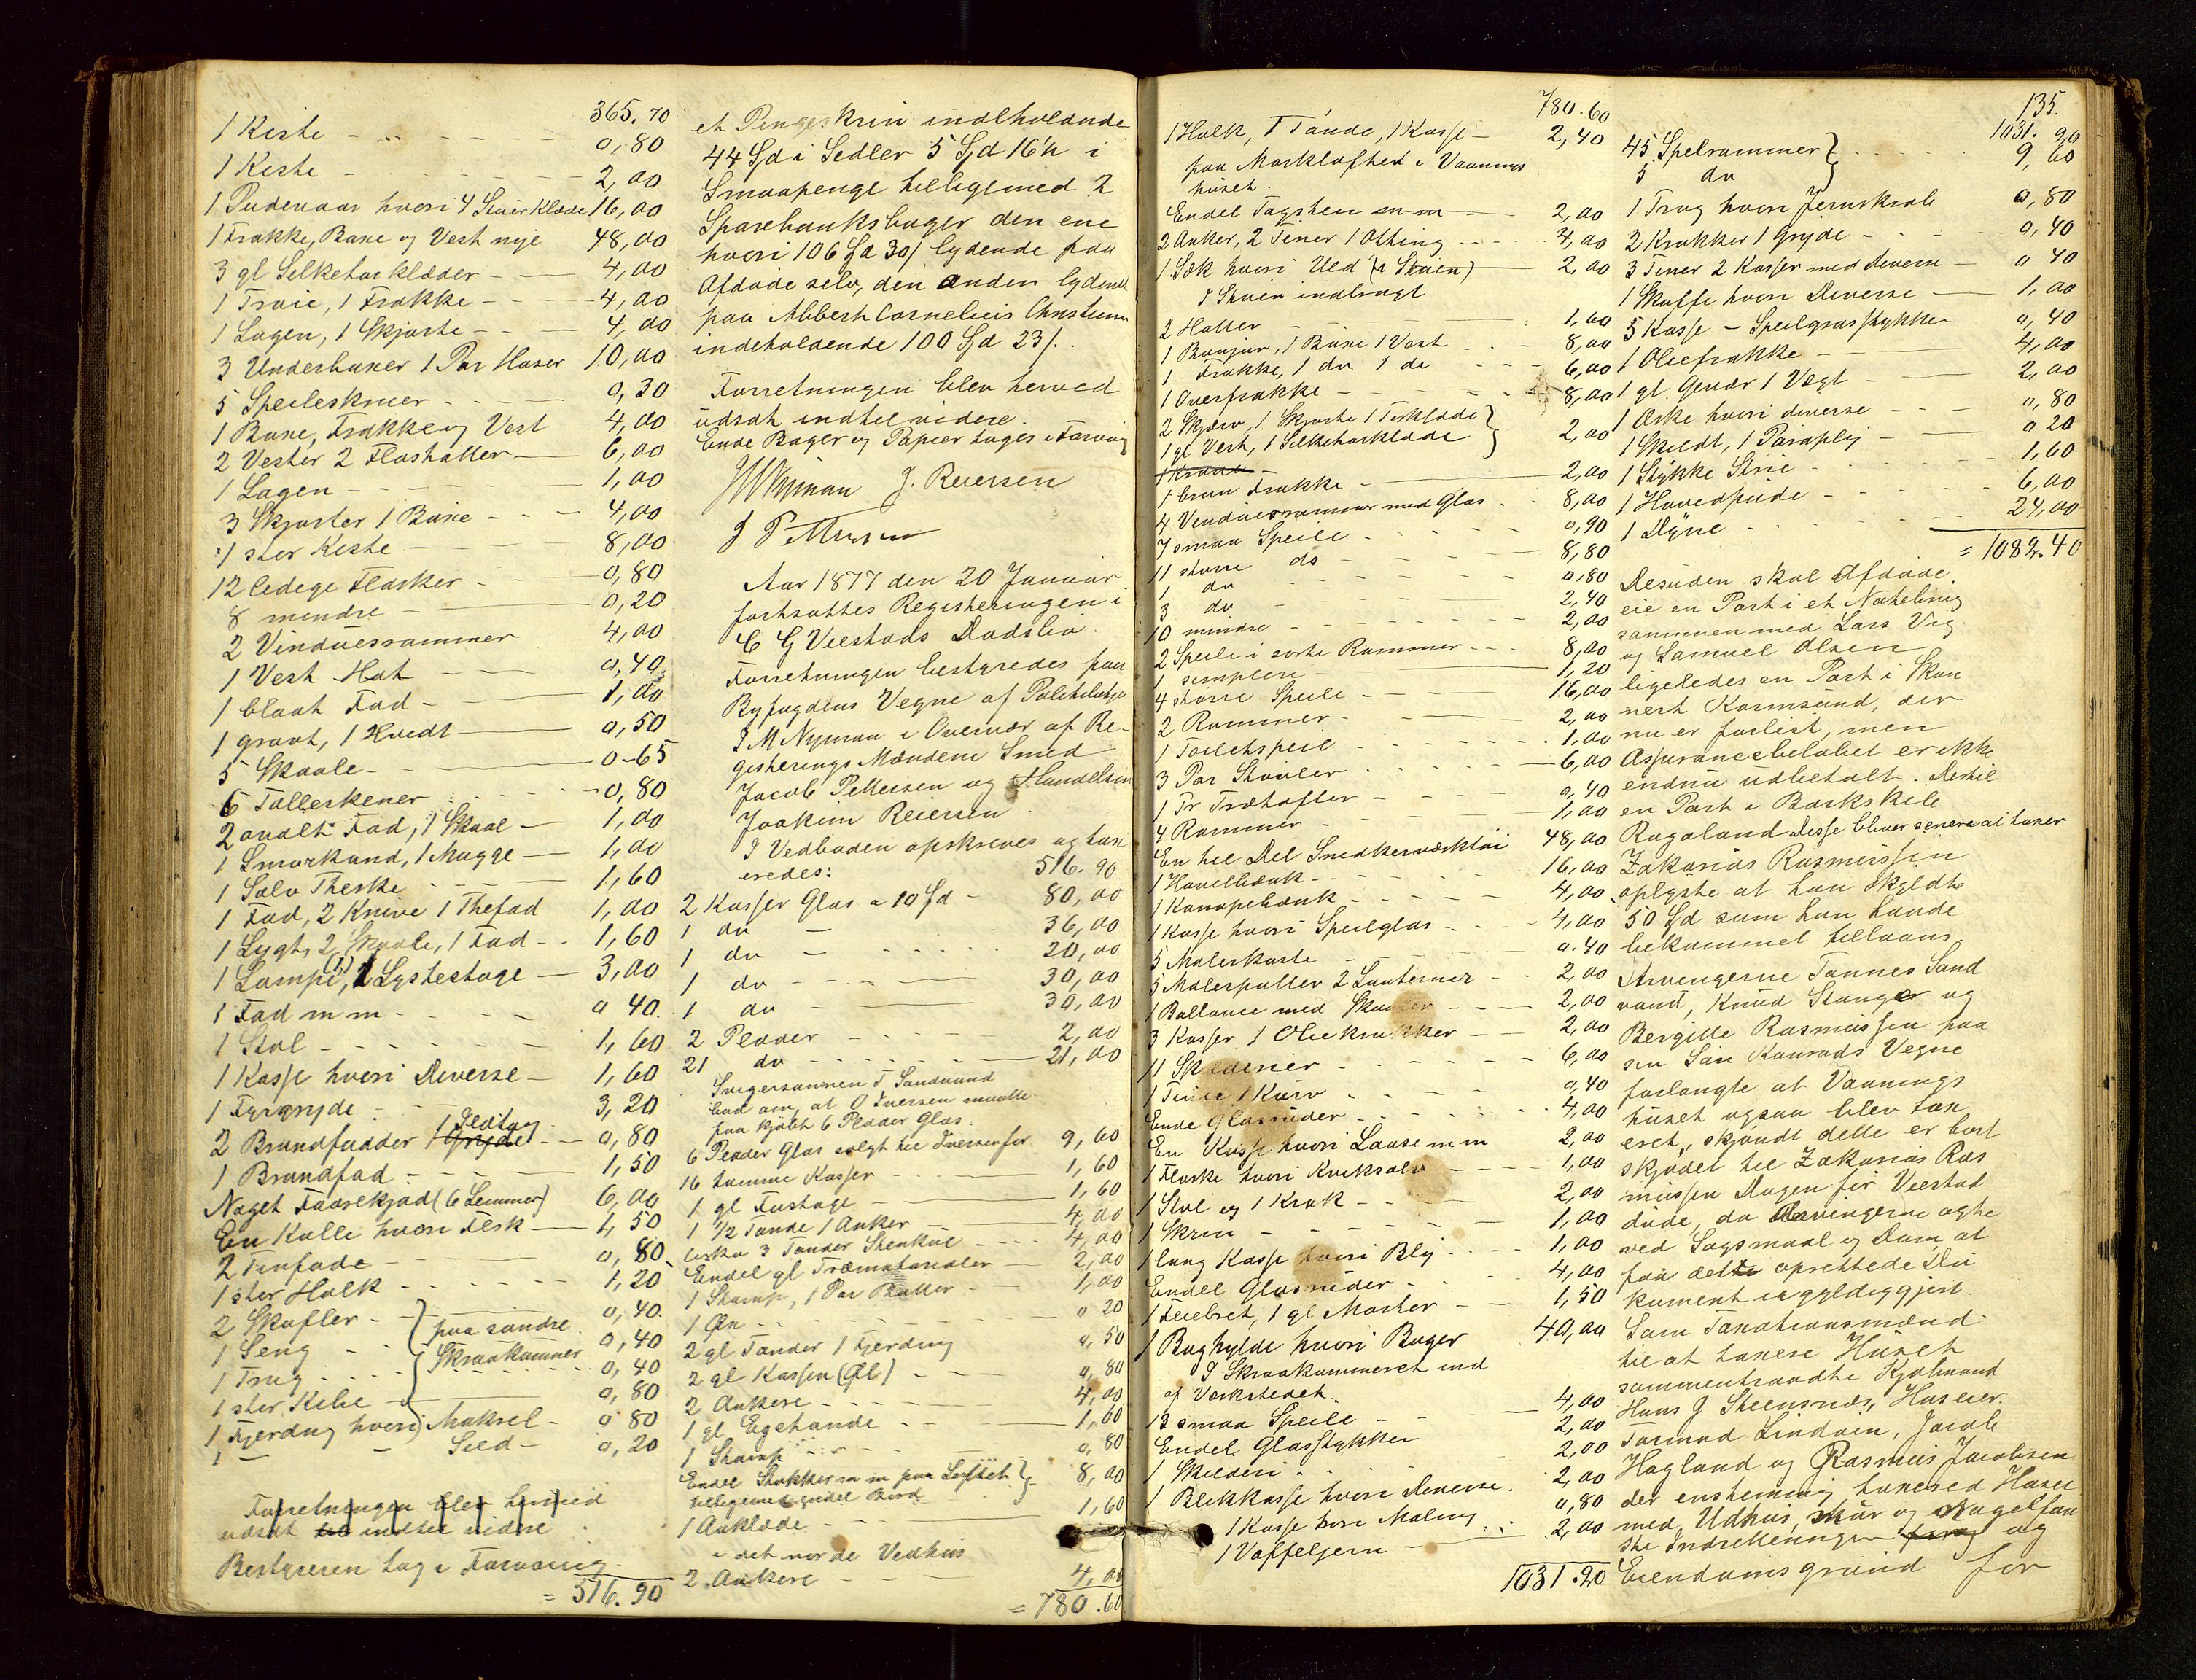 365.70
1 Kiste - 0,80
1 Kiste - 2,00
1 Pudevaar hvori 4 Stuer Klæde 16,00
1 Frakke, Buxe og Vest nye 48,00
3 gl Silketørklæder - 4,00
1 Trøie, 1 Frakke - 4,00
1 Lagen, 1 Skjorte - 4,00
3 Underbuxer 1 Par Hoser 10,00
5 Speileskruer - 0,30
1 Buxe, Frakke og Vest 4,00
2 Vester 2 Floshatter - 6,00
1 Lagen - 1,00
3 Skjorter 1 Buxe - 4,00
1 stor Kiste - 8,00
12 ledige Flasker - 0,80
8 mindre - 0,20
2 Vinduesrammer 4,00
1 Vest Hat - 0,40
1 blaat Fad - 1,00
1 graat, 1 Hvedt - 0,50
5 Skaale - 0-65
6 Tallerkener - 0,80
2 ovalt Fad, 1 Skaal - 1,00
1 Smørkand, 1 Mugge - 1,00
1 Sølv Theske - 1,60
1 Fad, 2 Knive 1 Thefad 1,00
1 Lygt, 2 Skaale, 1 Fad - 1,60
1 Lampe, 2 Lysestage - 3,00
1 Fad m m - 0 40
1 Stol - 1,60
1 Kasse hvori Diverse - 1,60
1 Fyrgryde - 3,20
2 Brandfadder 1 Gryde Ildtang - 0,80
1 Brandfad - 1,50
Noget Faarekjød (6 Lemmer) 6,00
En Kolle hvori Flesk - 1,50
2 Tinfade - 0,80
1 stor Holk - 1,20
2 Skufler - 0,40
1 Seng - } paa søndre 0,40
1 Trug - } Skraakammer 0,40
1 stor Kibe - 0,80
1 Fjerding hvori Makrel - 0 80
1 — - Sild - 0,20
Forretningen blev herved
udsat til indtil videre
Bestyreren tog i Forvaring
= 516.90
et Pengeskrin indholdende
44 Spd i Sedler 5 Spd 16 h i
Smaapenge tilligemed 2
Sparebanksbøger den ene
hvori 106 Spd 30 ß lydende paa
Afdøde selv, den anden lydende
paa Abbert Cornelius Christensen
indeholdende 100 Spd 23 ß.
Forretningen blev herved
udsat indtil videre.
Ende Bøger og Papier toges i Forvaring
JM Nyman J. Reiersen
J Pettersen
Aar 1877 den 20 Januar
fortsattes Registeringen i
C G Veestads Dødsbo.
Forretningen bestyredes paa
Byfogdens Vegne af Politibetjent
J M Nyman i Overvær af Re-
gisterings Mændene Smed
Jacob Pettersen og Handelsm
Joakim Reiersen
I Vedboden opskreves og tax
eredes: 516.90
2 Kasser Glas a 10 Spd - 80,00
1 do - 36,00
1 do - 20,00
1 do - 30,00
1 do - 30,00
2 Plader - 2,00
21 do - 21,00
Svigersønnen T Sandvand
bad om, at O Iversen maatte
faa kjøbt 6 Plader Glas.
6 Plader Glas solgt til Iversen for 9,60
16 tomme Kasser 1,60
1 gl Fustage - 1,60
1 1/2 Tønde 1 Anker - 4,00
cirka 3 Tønder Stenkul - 4,00
Endel gl Træmaterialer - 2,00
1 Stamp, 1 Par Bøtter - 1,00
1 Øx - 0 20
2 gl Tønder 1 Fjerding 0,50
2 gl Kasser (Øl) - 0,80
2 Ankere - 4,00
1 gl Egetønde - 1,60
1 Stamp - 0,80
Endel Stokker m m paa Loftet }
tilligemed endel Bord } 8,00
1 Anklæde - 1,60
i det nordre Vedhus
2 Ankere - 4,00
= 780.60
780.60
1 Holk, 1 Tønde, 1 Kasse - 2,40
paa Mørkloftet i Vaanings
huset.
Endel Tagsten m m - 2,00
2 Anker, 2 Tiner 1 Otting - 4,00
1 Sæk hvori Uld (a Stuen) 2,00
I Stuen indbragt
2 Hatter - 1,60
1 Bonjur, 1 Buxe 1 Vest - 8,00
1 Frakke, 1 do 1 do - 6,00
1 Overfrakke - 8,00
2 Skjæv, 1 Skjorte 1 Tørklæde }
1 gl Vest, 1 Silketørklæde } 2,00
1 brun Frakke - 2,00
4 Venduesrammer med Glas - 8,00
7 smaa Speile - 0,90
11 større do - 8,80
1 do - 0,80
3 do - 2,40
10 mindre - 2,00
2 Speile i sorte Rammer - 8,00
1 simplere - 1,20
4 større Speile - 16,00
2 Rammer - 2,00
1 Toiletspeil - 1,00
3 Par Støvler - 6,00
1 Pr Trætøfler - 0,40
4 Rammer - 1,00
En hel Del Snedkerværktøi 48,00
1 Høvelbænk - 16,00
1 Kanapebænk - 4,00
1 Kasse hvori Speilglas - 4,00
5 Malerkoste - 0.40
5 Malerpotter 2 Lanterner - 2,00
1 Ballance med Skaaler - 2,00
3 Kasser 1 Oliekrukker - 2,00
11 Skilderier - 6,00
1 Tine 1 Kurv - 0,40
Ende Glasruder - 4,00
En Kasse hvori Laase m m 2,00
1 Flaske hvori Kviksølv - 1,00
1 Stol og 1 Krak - 2,00
1 Skrin - 1,00
1 lang Kasse hvori Bly - 1,00
Endel Glasruder - 4,00
1 Feiebret, 1 gl Morter - 1,50
1 Boghylde hvori Bøger 40,00
I Skraakammeret ind
af Værkstedet.
13 smaa Speile - 4,00
Endel Glasstykker 2,00
1 Skilderi - 2,00
1 Blikkasse hvori Diverse - 2,00
1 Kasse hvori Maling 0,80
1 Vaffeljern - 2,00
1031.20
135.
1031.20
45 Speilrammer }
5 do } 9,60
1 Trug hvori Jernskrab 0,80
2 Krukker 1 Gryde - 0,40
3 Tiner 2 Kasser med Diverse - 0 40
1 Skuffe hvori Diverse - 1,00
5 Kasse - Speilglasstykker 0,40
1 Oliefrakke - 4,00
1 gl. Gevær 1 Vægt - 2,00
1 Æske hvori diverse - 0,80
1 Skildt, 1 Paraply - 0 20
1 Stykke Strie - 1,60
1 Hovedpude - 6,00
1 Dyne - 24,00
= 1082.40
Desuden skal Afdøde
eie en Part i et Notebrug
sammen med Lars Vig
og Samuel Olsen
ligeledes en Part i Skon
nert Karmsund, der
nu er forlist, men
Assurancebeløbet er ikke
endnu udbetalt. Dertil
en Part i Barkskib
Rogaland Disse bliver senere at taxere
Zakarias Rasmussen
oplyste at han skyldte
50 Spd som han havde
bekommet tillaans.
Arvingerne Tønnes Sand
vand, Knud Stange og
Bergitte Rasmussen paa
sin Søn Konrads Vegne
forlangte at Vaanings
huset ogsaa blev tax
eret, skjøndt dette er bort
skjødet til Zakarias Ras
mussen Dagen før Veestad
døde, da Arvingerne agte
ved Søgsmaal og Dom, at
faa dette oprettede Do
kument ugyldiggjort.
Som Taxationsmænd
til at taxere Huset
sammentraadte Kjøbmand
Hans J Steensnæs, Huseier
Tormod Lindøin, Jacob
Hagland og Rasmus Jacobsen
der enstemmig taxered Huset
med Udhus, skur og Nagelfas
ste Indretninger og
Eiendomsgrund for